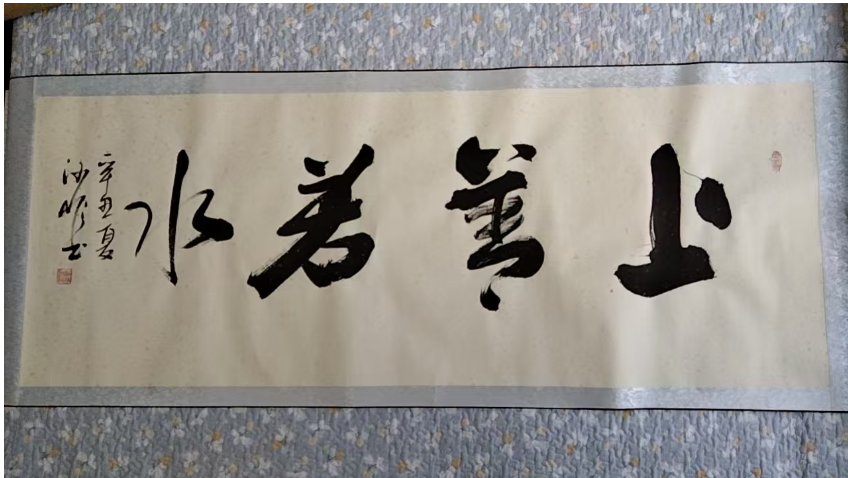 上善若水
辛丑夏
沙順书